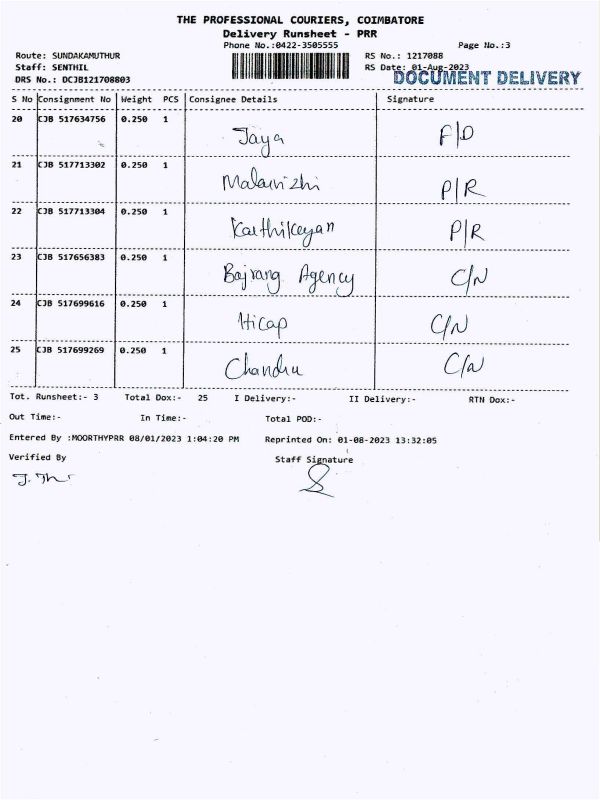 THE PROFESSIONAL COURIERS, COIMBATORE
Delivery Runsheet - PRR
Phone No.:0422-3505555 Page No.:3
Route: SUNDAKAMUTHUR RS No.: 1217088
Staff: SENTHIL RS Date: 01-Aug-2023
DRS No.: DCJB121708803 DOCUMENT DELIVERY
S No Consignment No Weight PCS Consignee Details Signature
20 CJB 517634756 0.250 1 Jaya F/D
21 CJB 517713302 0.250 1 Malarvizhi P/R
22 CJB 517713304 0.250 1 Karthikeyan P/R
23 CJB 517656383 0.250 1 Bajrang Agency C/N
24 CJB 517699616 0.250 1 Hicap C/N
25 CJB 517699269 0.250 1 Chandru C/N
Tot. Runsheet:- 3 Total Dox:- 25 I Delivery:- II Delivery:- RTN Dox:-
Out Time:- In Time:- Total POD:-
Entered By :MOORTHYPRR 08/01/2023 1:04:20 PM Reprinted On: 01-08-2023 13:32:05
Verified By Staff Signature